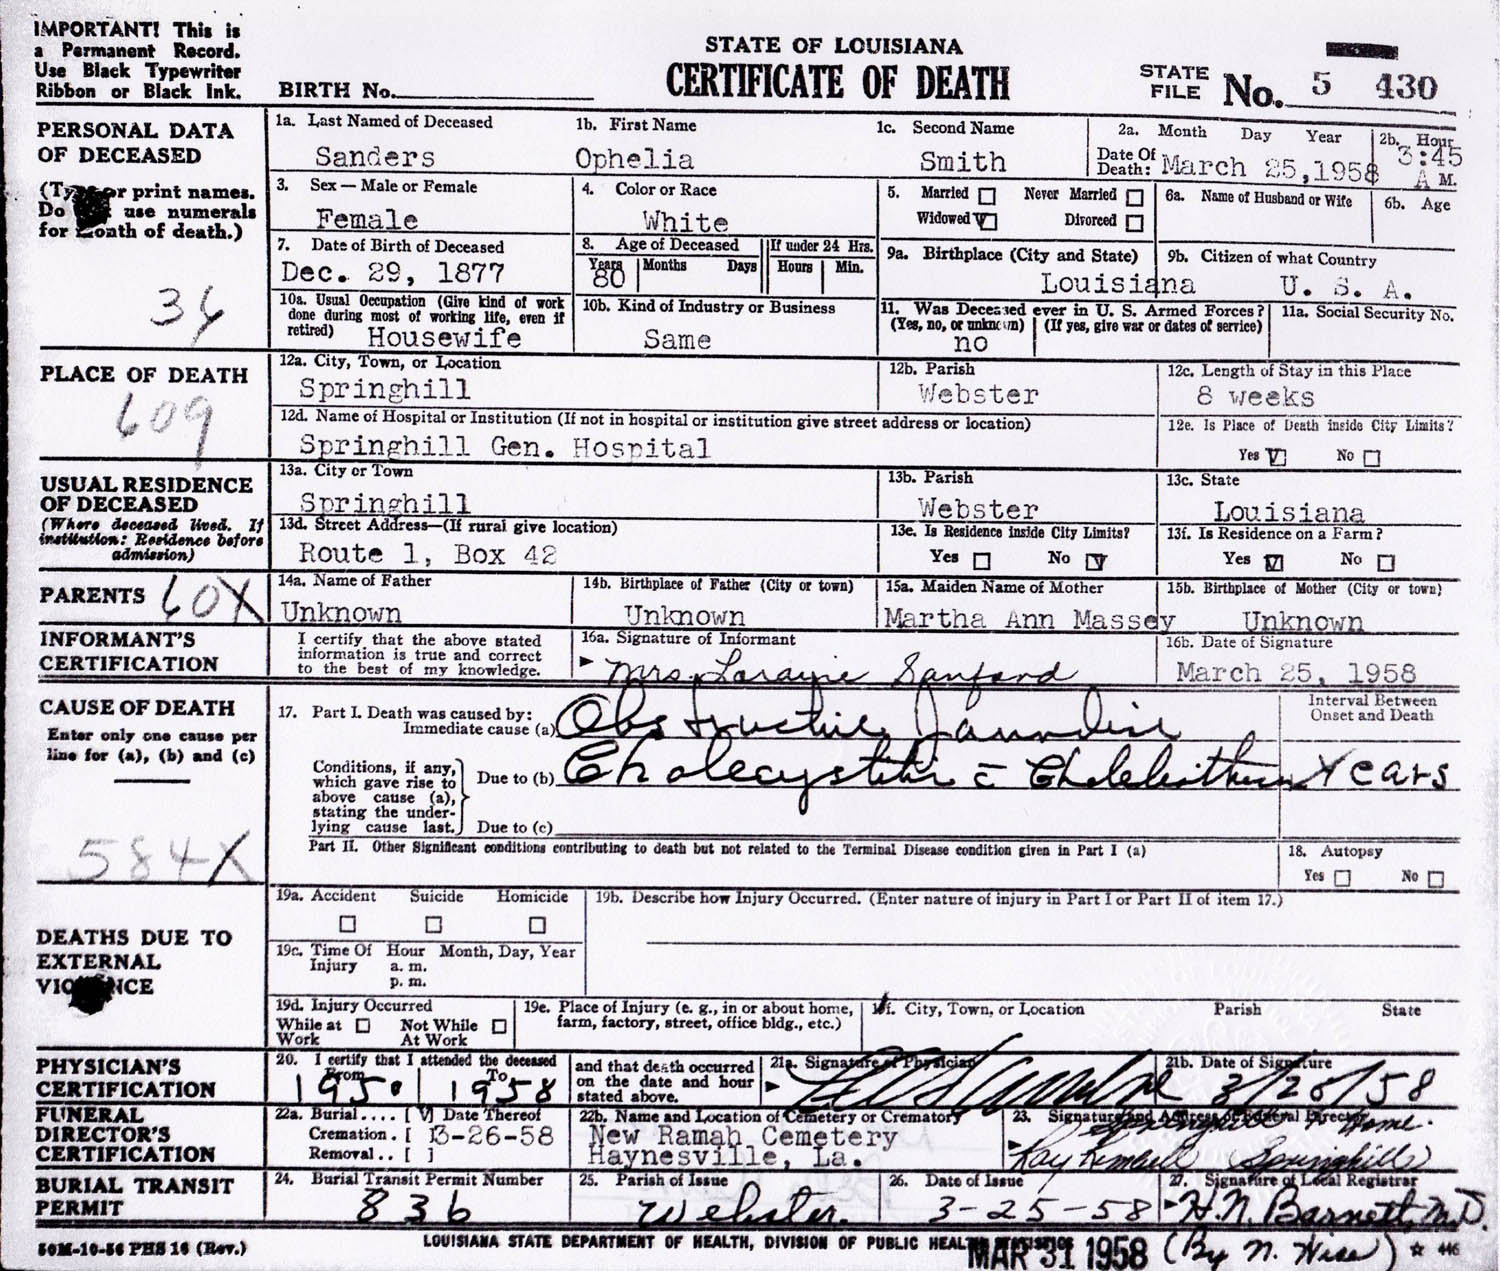 IMPORTANT! This is
a Permanent Record.
Use Black Typewriter
Ribbon or Black Ink.
STATE OF LOUISIANA
CERTIFICATE OF DEATH
BIRTH No.
STATE FILE No. 5 430
PERSONAL DATA
OF DECEASED
(Type or print names.
Do use numerals
for month of death.)
36
1a. Last Named of Deceased
Sanders
1b. First Name
Ophelia
1c. Second Name
Smith
2a. Month Day Year
Date Of
Death: March 25,1958
2b. Hour
3:45
A M.
3. Sex — Male or Female
Female
4. Color or Race
White
5. Married Never Married
Widowed V Divorced
6a. Name of Husband or Wife
6b. Age
7. Date of Birth of Deceased
Dec. 29, 1877
8. Age of Deceased
Years Months Days
80
If under 24 Hrs.
Hours Min.
9a. Birthplace (City and State)
Louisiana
9b. Citizen of what Country
U. S. A.
10a. Usual Occupation (Give kind of work
done during most of working life, even if
retired) Housewife
10b. Kind of Industry or Business
Same
11. Was Deceased ever in U. S. Armed Forces?
(Yes, no, or unknown) (If yes, give war or dates of service)
no
11a. Social Security No.
PLACE OF DEATH
609
12a. City, Town, or Location
Springhill
12b. Parish
Webster
12c. Length of Stay in this Place
8 weeks
12d. Name of Hospital or Institution (If not in hospital or institution give street address or location)
Springhill Gen. Hospital
12e. Is Place of Death inside City Limits?
Yes V No
USUAL RESIDENCE
OF DECEASED
(Where deceased lived. If
institution: Residence before
admission)
13a. City or Town
Springhill
13b. Parish
Webster
13c. State
Louisiana
13d. Street Address—(If rural give location)
Route 1, Box 42
13e. Is Residence inside City Limits?
Yes No V
13f. Is Residence on a Farm?
Yes V No
PARENTS 60X
14a. Name of Father
Unknown
14b. Birthplace of Father (City or town)
Unknown
15a. Maiden Name of Mother
Martha Ann Massey
15b. Birthplace of Mother (City or town)
Unknown
INFORMANT'S
CERTIFICATION
I certify that the above stated
information is true and correct
to the best of my knowledge.
16a. Signature of Informant
Mrs. Lorayne Sanford
16b. Date of Signature
March 25, 1958
CAUSE OF DEATH
Enter only one cause per
line for (a), (b) and (c)
584X
17. Part I. Death was caused by:
Immediate cause (a) Obstructive Jaundice
Interval Between
Onset and Death
Conditions, if any,
which gave rise to
above cause (a),
stating the under-
lying cause last.
Due to (b) Cholecystitis c̄ Cholelithiasis Years
Due to (c)
Part II. Other Significant conditions contributing to death but not related to the Terminal Disease condition given in Part I (a)
18. Autopsy
Yes No
DEATHS DUE TO
EXTERNAL
VIOLENCE
19a. Accident Suicide Homicide
19b. Describe how Injury Occurred. (Enter nature of injury in Part I or Part II of item 17.)
19c. Time Of Hour Month, Day, Year
Injury a. m.
p. m.
19d. Injury Occurred
While at Not While
Work At Work
19e. Place of Injury (e. g., in or about home,
farm, factory, street, office bldg., etc.)
19f. City, Town, or Location Parish State
PHYSICIAN'S
CERTIFICATION
20. I certify that I attended the deceased
From To
1950 1958
and that death occurred
on the date and hour
stated above.
21a. Signature of Physician
21b. Date of Signature
3/28/58
FUNERAL
DIRECTOR'S
CERTIFICATION
22a. Burial.... [ V] Date Thereof
Cremation . [ ] 3-26-58
Removal . . [ ]
22b. Name and Location of Cemetery or Crematory
New Ramah Cemetery
Haynesville, La.
23. Signature and Address of Funeral Director
Springhill F. Home.
Ray Kimbell Springhill
BURIAL TRANSIT
PERMIT
24. Burial Transit Permit Number
836
25. Parish of Issue
Webster.
26. Date of Issue
3-25-58
27. Signature of Local Registrar
H. N. Barnett, M.D.
(By N. Wise)
50M-10-56 PHS 16 (Rev.)
LOUISIANA STATE DEPARTMENT OF HEALTH, DIVISION OF PUBLIC HEALTH STATISTICS
MAR 31 1958
☆ 446